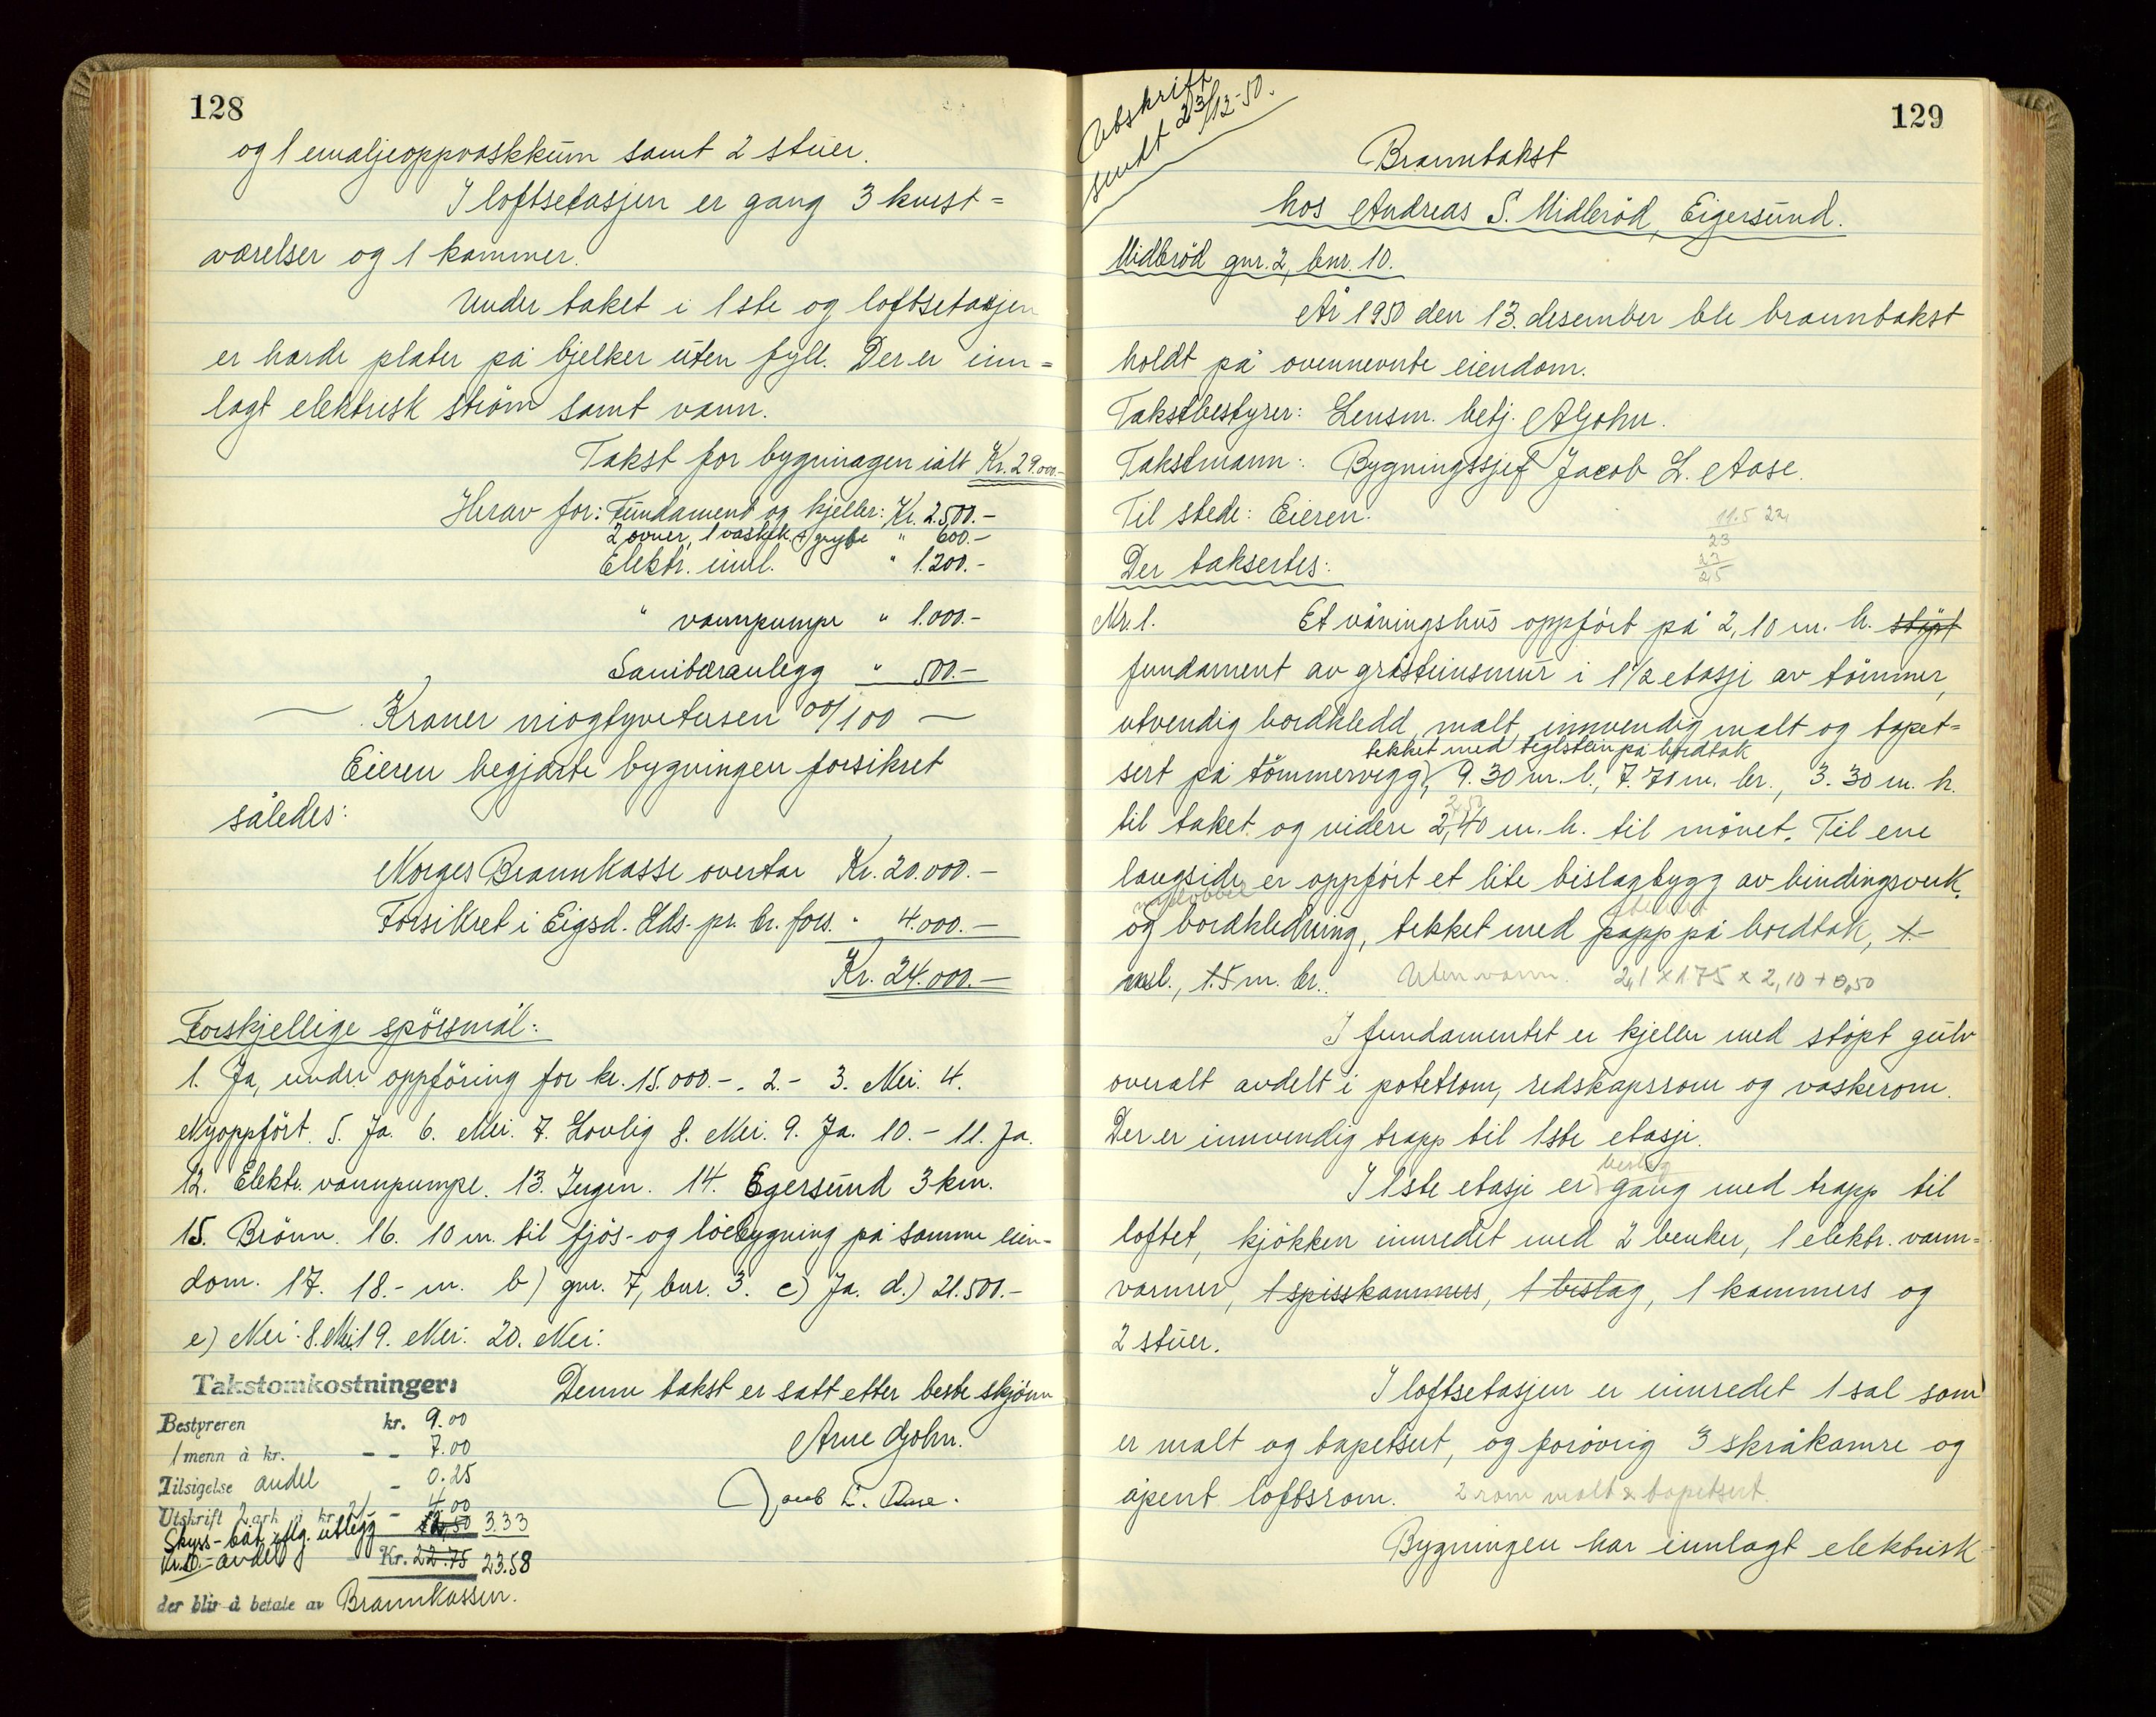 128
og 1 emaljeoppvaskkum samt 2 stuer.
I loftsetasjen er gang 3 kvist=
værelser og 1 kammer.
Under taket i 1ste og loftsetasjen
er harde plater på bjelker uten fyll. Der er inn=
lagt elektrisk strøm samt vann.
Takst for bygningen ialt Kr. 29.000.-
Herav for: Fundament og kjeller: Kr. 2.500.-
2 ovner, 1 vaskek. gryte " 600.-
Elektr. innl. " 1.200.-
" vannpumpe " 1.000.-
Sanitæranlegg " 500.-
Kroner niogtyvetusen 00/100
Eieren begjærte bygningen forsikret
således:
Norges Brannkasse overtar Kr. 20.000.-
Forsikret i Eigsd. Hds. pr. br. fors. " 4.000.-
Kr. 24.000.-
Forskjellige spørsmål:
1. Ja, under oppføring for kr. 15.000.-. 2.- 3. Nei. 4.
Nyoppført. 5. Ja. 6. Nei. 7. Lovlig 8. Nei. 9. Ja. 10.- 11. Ja.
12. Elektr. vannpumpe. 13. Ingen. 14. Egersund 3 km.
15. Brønn. 16. 10 m. til fjøs- og løebygning på samme eien-
dom. 17. 18.- m. b) gnr. 7, bnr. 3. c) Ja. d.) 21.500.-
e) Nei. 8. Nei 19. Nei. 20. Nei.
Takstomkostninger:
Denne takst er satt etter beste skjønn
Bestyreren kr. 9.00
1 menn à kr. - - 7.00
Arne Gjohn.
Tilsigelse andel - 0.25
Jacob L. Aase.
Utskrift 2 ark à kr. 2/- - 4.00
Skyss- båt iflg. utlegg 3.33
andel Kr. 22.75 23.58
der blir å betale av Brannkassen.
Avskrift
sendt 23/12-50.
129
Branntakst
hos Andreas S. Midbrød, Eigersund.
Midbrød gnr. 2, bnr. 10.
År 1950 den 13. desember ble branntakst
holdt på ovennevnte eiendom.
Takstbestyrer: Lensm. betj. A Gjohn.
Takstmann: Bygningssjef Jacob L. Aase.
Til stede: Eieren.
11.5 22
23
23
2,5
Der taksertes:
Nr. 1. Et våningshus oppført på 2,10 m. h. støpt
fundament av gråsteinsmur i 1 1/2 etasje av tømmer,
utvendig bordkledd, malt, innvendig malt og tapet=
tekket med teglstein på bordtak
sert på tømmervegg, 9.30 m. l., 7.70 m. br., 3.30 m. h.
2,50
til taket og videre 2,40 m. h. til mønet. Til ene
langside er oppført et lite bislagbygg av bindingsverk
og bordkledning, tekket med papp på bordtak, 1.-
m. l., 1.5 m. br. Uten vann. 2,1 x 1.75 x 2,10 + 0,50
I fundamentet er kjeller med støpt gulv
overalt avdelt i potetrom, redskapsrom og vaskerom.
Der er innvendig trapp til 1ste etasje.
bislag
I 1ste etasje er gang med trapp til
loftet, kjøkken innredet med 2 benker, 1 elektr. vann=
varmer, 1 spisskammers, 1 bislag, 1 kammers og
2 stuer.
I loftsetasjen er innredet 1 sal som
er malt og tapetsert, og forøvrig 3 skråkamre og
åpent loftsrom. 2 rom malt & tapetsert.
Bygningen har innlagt elektrisk